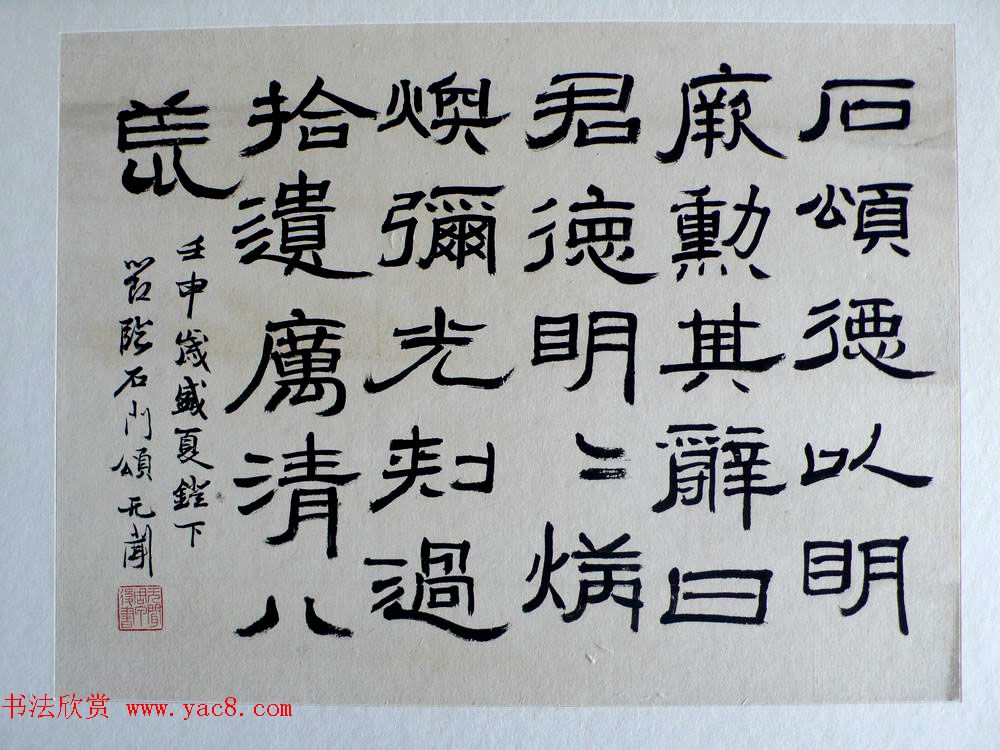 石頌德以明
厥勳其辭曰
君德明〻炳
煥彌光刺過
拾遺厲清八
荒
壬申歲盛夏鐙下
臨石門頌无聞
书法欣赏 www.yac8.com